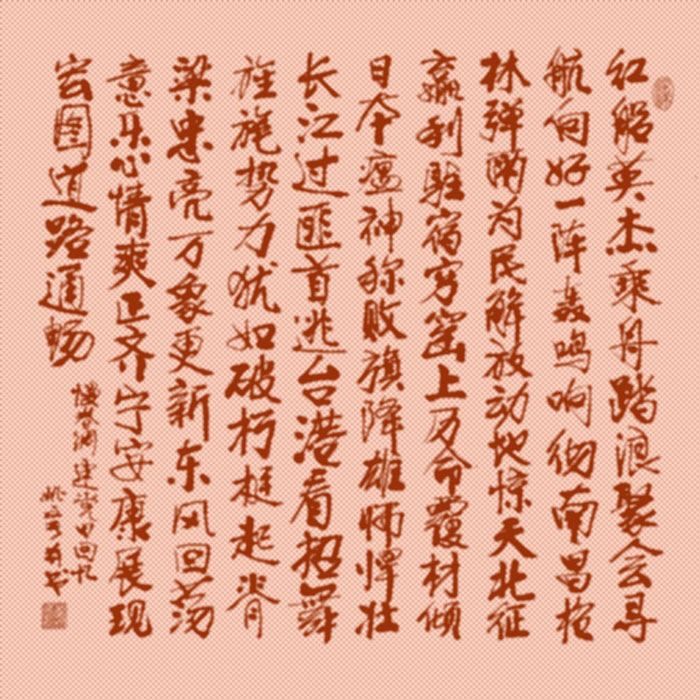 红船英杰乘舟踏浪聚会寻
航向好一阵轰鸣响彻南昌枪
林弹雨为民解放动地惊天北征
赢利驻宿穷窑上万命覆材倾
日本瘟神称败旗降雄师悍壮
长江过匪首逃台港看招舞
旌势力犹如破朽挺起脊
梁忠亮万象更新东风回荡
意乐心情爽匡齐宁安康展现
宏图道路通畅
建党回忆